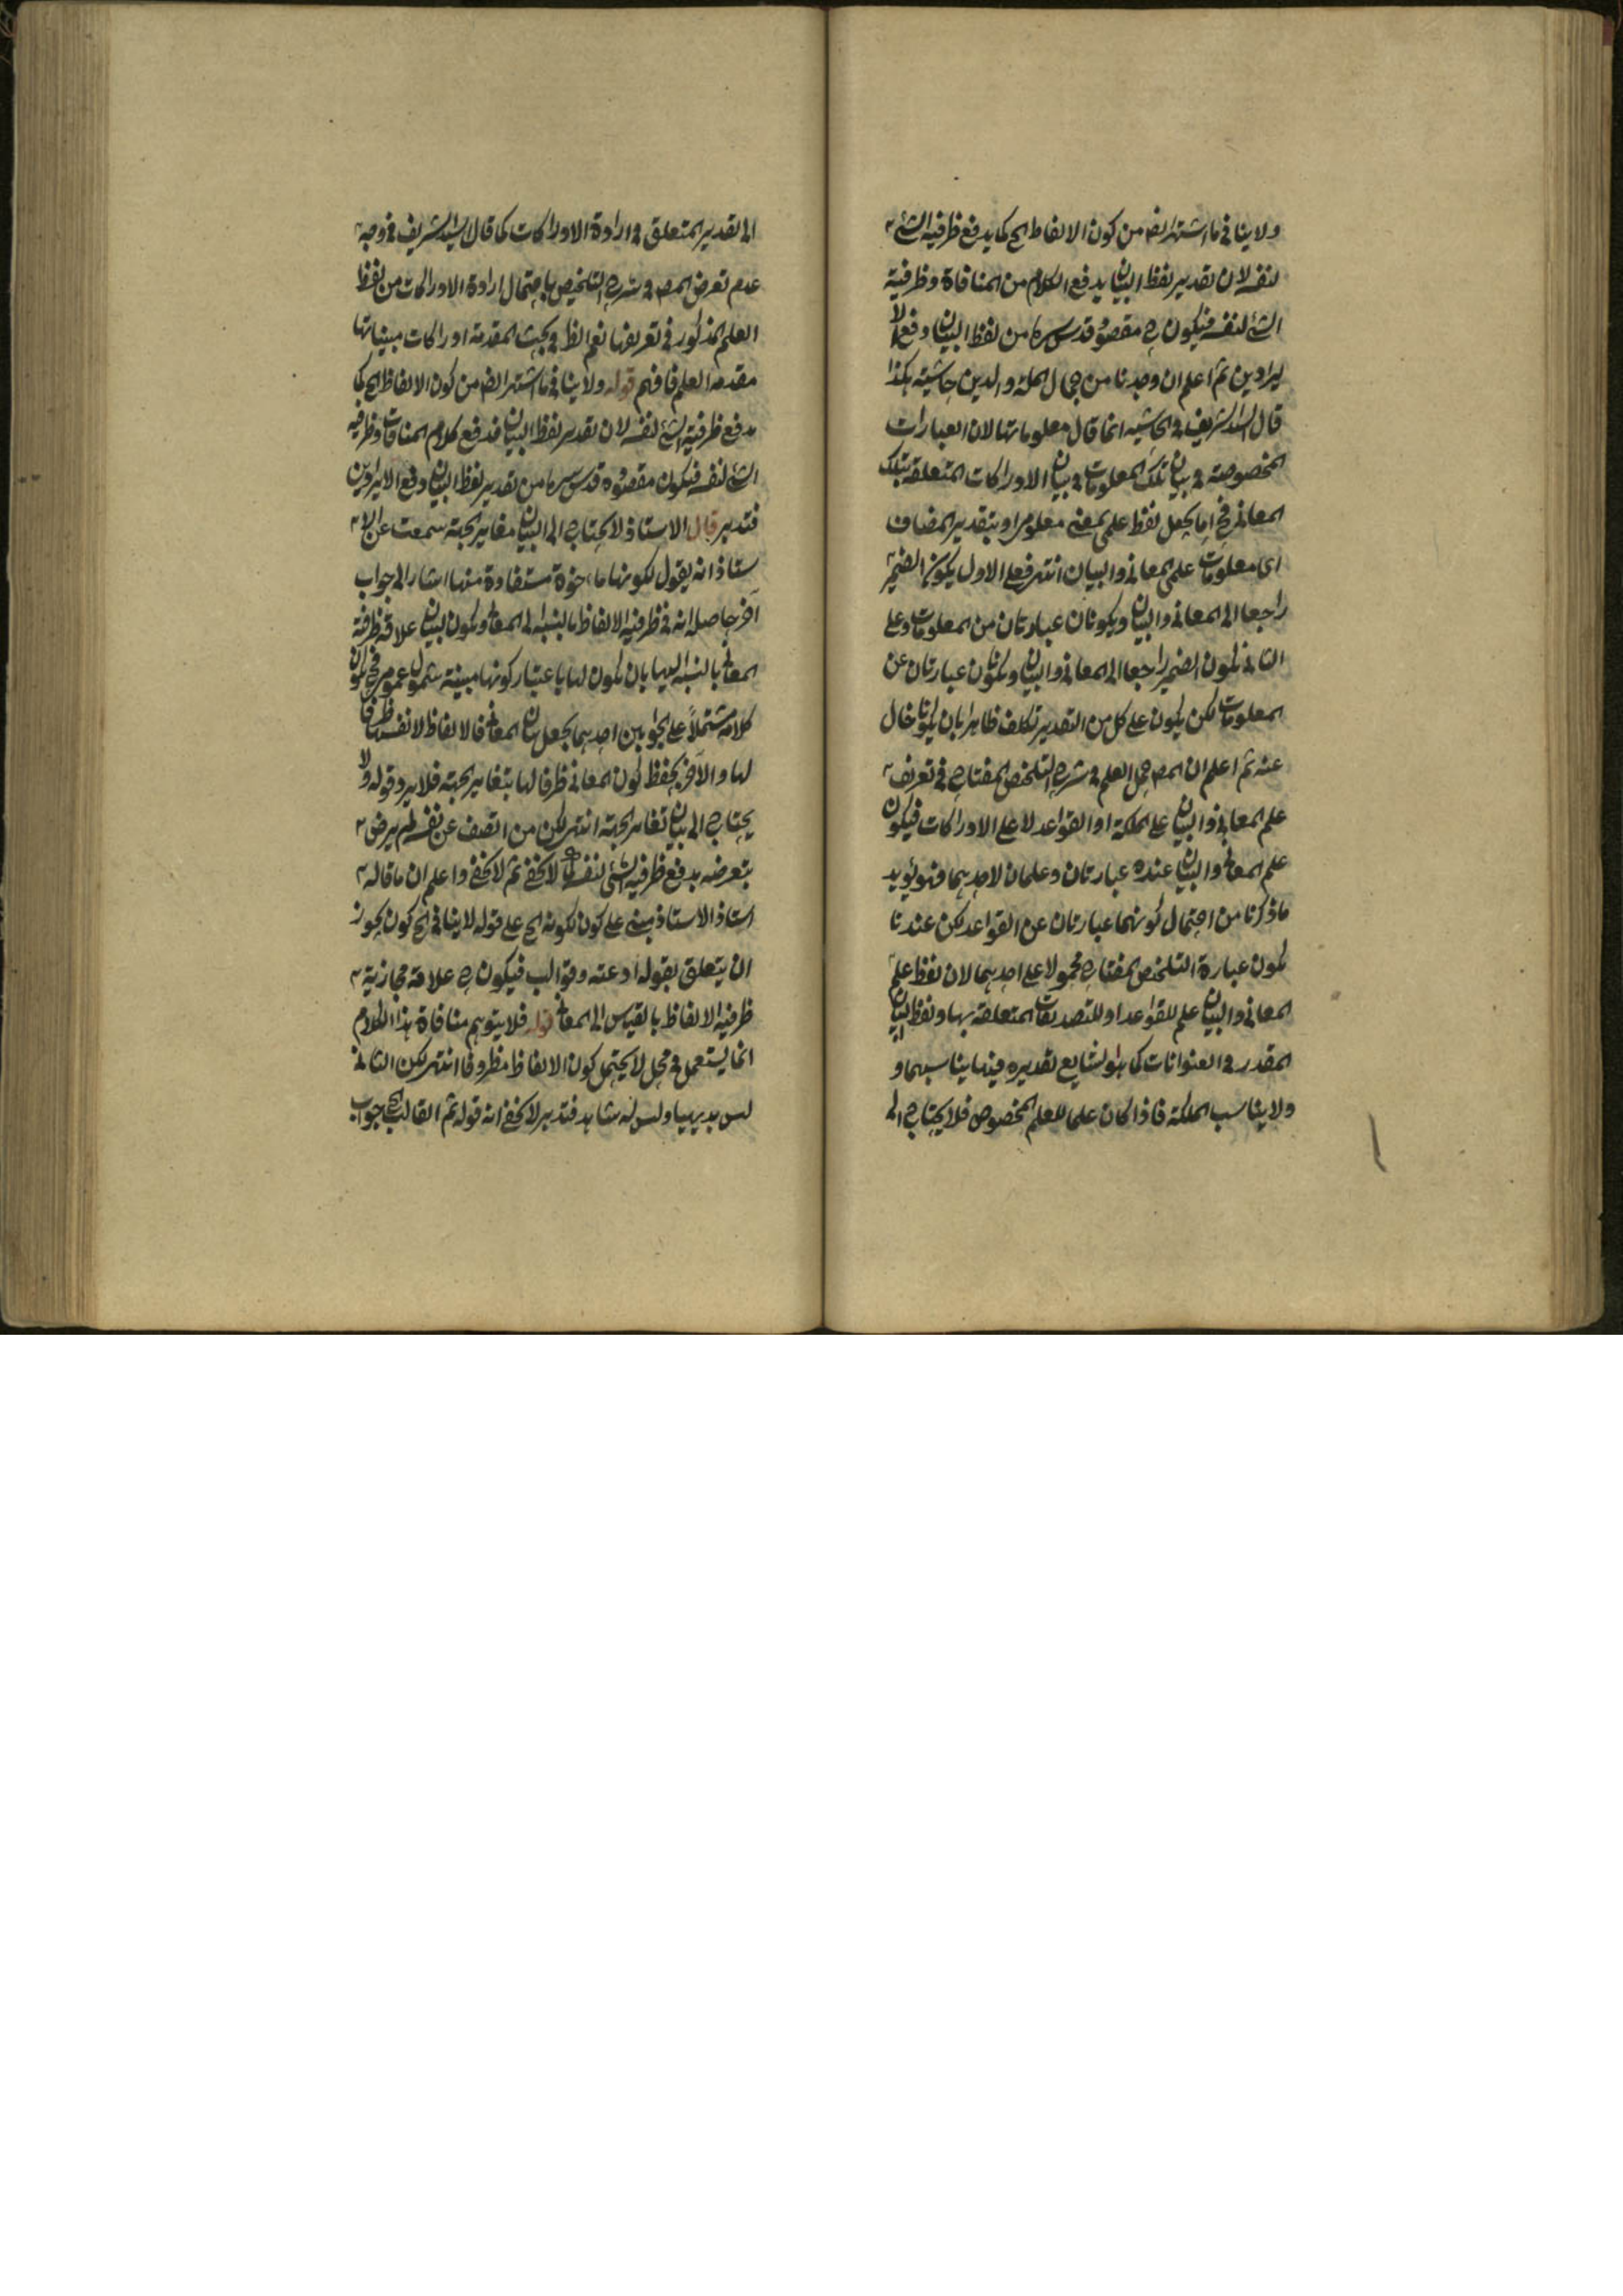 ولا ينافى ما اشتهر ايضا من كون الالفاظ الخ كما يدفع ظرفية الشئ
لنفسه لان تقدير لفظ البيان يدفع الكلام من المنافاة وظرفية
الشئ لنفسه فيكون ح مقصوده قدس سره من لفظ البيان دفع الا
يرادين ثم اعلم ان وجدنا من جمال الملة والدين حاشية هكذا
قال السيد الشريف فى الحاشية انما قال معلوماتها لان العبارات
المخصوصة فى بيان تلك المعلومات فى بيان الادراكات المتعلقة بتلك
المعانى فح اما يجعل لفظ علمى بمعنى معلومى او بتقدير المضاف
اى معلومات علمى المعانى والبيان انتهى فعلى الاول يكون الضمير
راجعا الى المعانى والبيان ويكونان عبارتان من المعلومات وعلى
الثانى يكون الضمير راجعا الى المعانى والبيان ويكونان عبارتان عن
المعلومات لكن يكون على كل من التقدير تكلف ظاهرا بان يكونا خال
عنه ثم اعلم ان المص حمل العلم فى شرح التلخيص المفتاح فى تعريف
علم المعانى والبيان على الملكة او القواعد لا على الادراكات فيكون
علم المعانى والبيان عنده عبارتان وعلمان لاحديهما فهو يؤيد
ماذكرنا من احتمال كونهما عبارتان عن القواعد لكن عندنا
يكون عبارة التلخيص المفتاح محمولا على احديهما لان لفظ علم
المعانى والبيان علم للقواعد او للتصديقات المتعلقة بها ولفظ البيان
المقدر فى العنوانات كما هو لشايع تقديره فيها يناسبهما و
ولا يناسب الملكة فاذا كان علما للعلم المخصوص فلا يحتاج الى
الى تقدير المتعلق فى ارادة الادراكات كما قال السيد الشريف فى وجه
عدم تعرض المص فى شرح التلخيص باحتمال ارادة الادراكات من لفظ
العلم المذكور فى تعريفها نعم الظ فى بحث المقدمة ادراكات مبيناتها
مقدمه العلم فافهم قوله ولا ينافى ما اشتهر ايضا من كون الالفاظ الخ كما
يدفع ظرفية الشئ لنفسه لان تقدير لفظ البيان فدفع كلام المنافات وظرفيه
الشئ لنفسه فيكون مقصوده قدس سره من تقدير لفظ البيان دفع الايرادين
فتدبر قال الاستاذ لا يحتاج الى البيان مغاير الجهة سمعت عن الا
ستاذ انه يقول لكونها ماخوذة مستفادة منها اشار الى جواب
آخر حاصله انه فى ظرفية الالفاظ بالنسبة الى المعانى ويكون البيان علاقة ظرفة
المعانى بالنسبة اليها بان يكون لها باعتبار كونها مبينة شمول عمومى فح يكون
كلامه مشتملاً على الجوابين احديهما يجعل بيان المعانى فالالفاظ لانفسها ظرفا
لها والآخر يحفظ كون المعانى ظرفا لها بتغاير الجهة فلا يرد قوله ولا
يحتاج الى بيان تغاير الجهة انتهى لكن من انصف عن نفسه لم يرض
بتعرضه بدفع ظرفية الشئ لنفسه كما لا يخفى ثم لا يخفى واعلم ان ما قاله
استاذ الاستاذ مبنى على كون لكونه الخ على قوله لا ينافى الخ كون يجوز
ان يتعلق بقوله اوعته وقوالب فيكون ح علاقة مجازية
ظرفية الالفاظ بالقياس الى المعانى قوله فلا يتوهم منافاة هذا الكلام
انما يستعمل فى محل لا يحتمل كون الالفاظ مظروفا انتهى لكن الثانى
ليس بديهيا وليس له شاهد فتدبر لا يخفى انه قوله ثم القالب الخ جواب